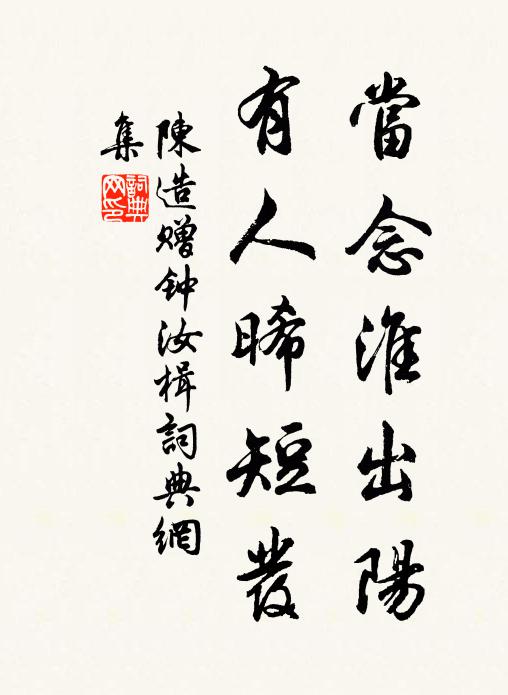 當念淮出陽
有人晞短發
陳造贈钟汝楫詞典網
集
詞典网印